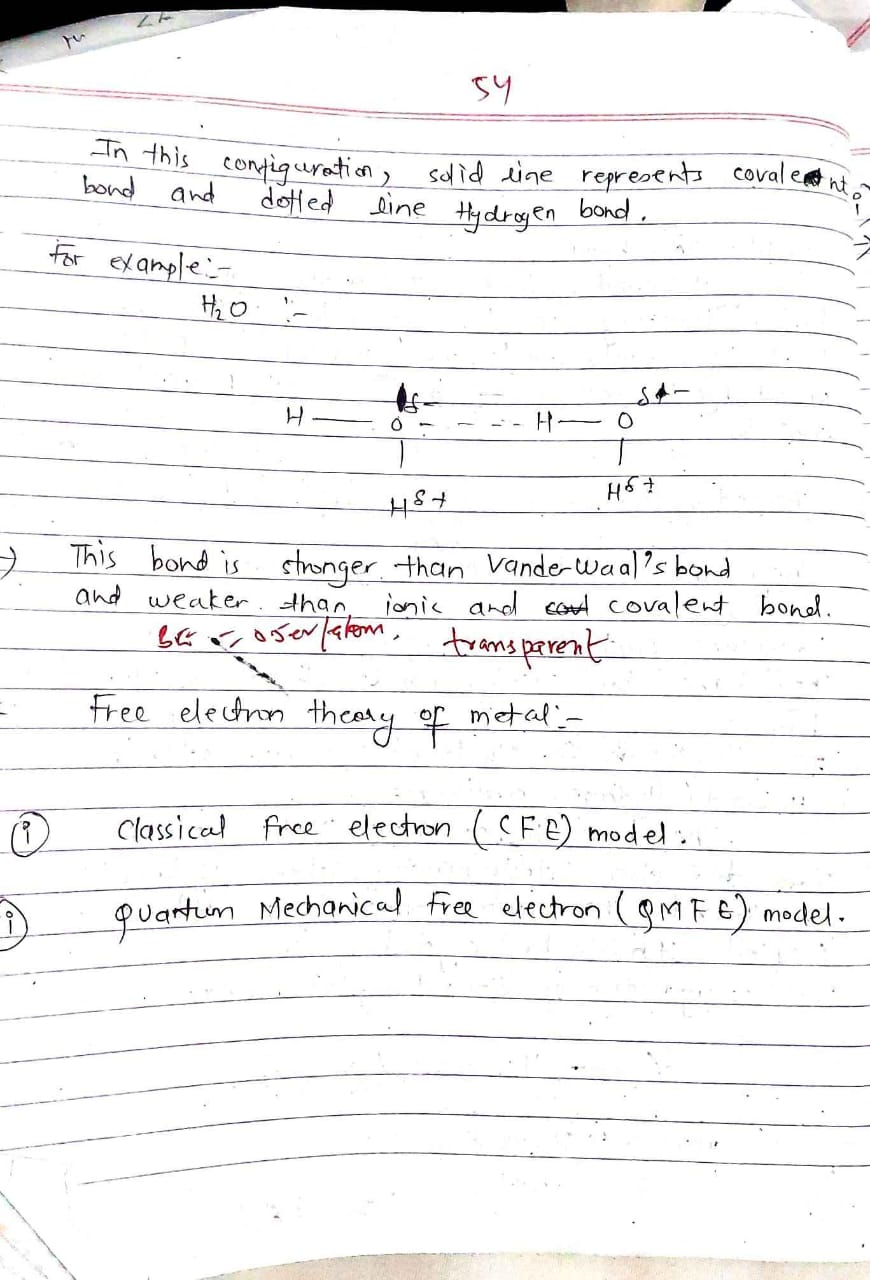 54
In this configuration, solid line represents covalent
bond and dotted line Hydrogen bond.
For example:-
H₂O :-
δ- δ-
H — O - - - - H — O
| |
Hδ+ Hδ+
→ This bond is stronger than Vander Waal's bond
and weaker than ionic and covalent bond.
0.5 ev/atom, transparent
Free electron theory of metal:-
(i) Classical free electron (CFE) model.
Quantum Mechanical Free electron (QMFE) model.